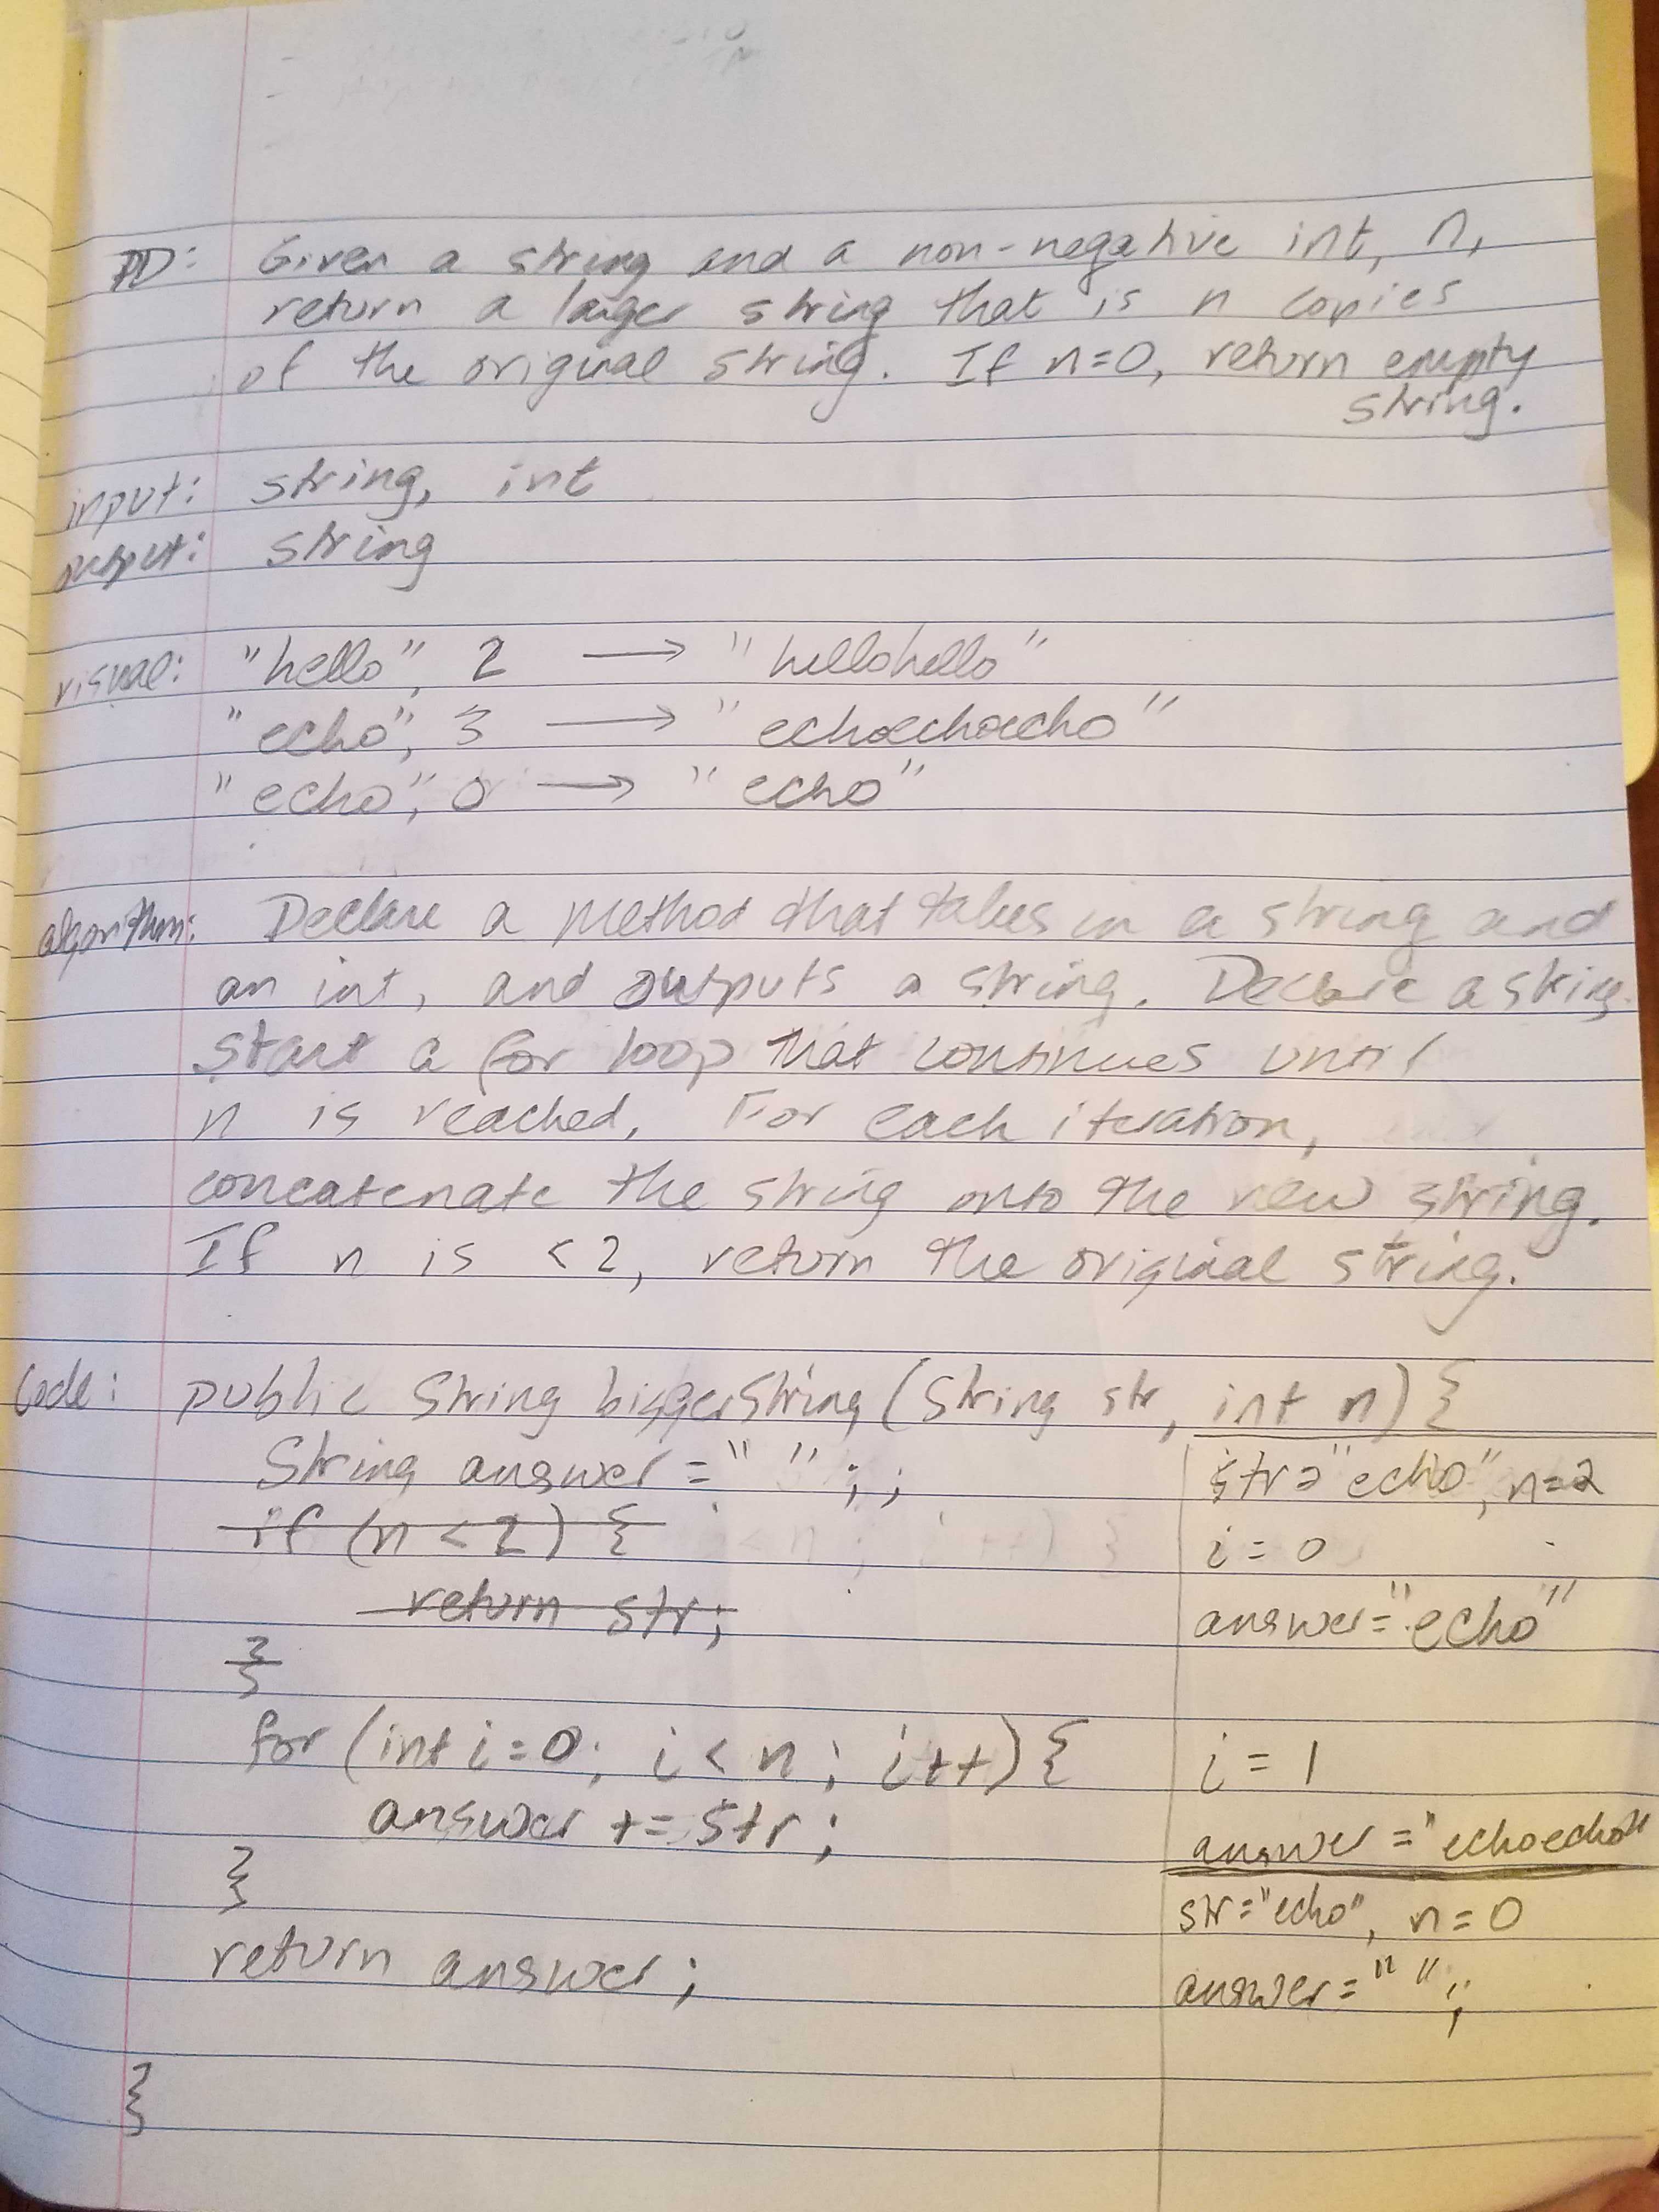 PD: Given a string and a non-negative int, n,
return a larger string that is n copies
of the original string. If n=0, return empty
string.
input: string, int
output: string
visual: "hello", 2 → "hellohello"
"echo", 3 → "echoechoecho"
"echo", 0 → "echo"
algorithm: Declare a method that takes in a string and
an int, and outputs a string. Declare a string.
start a for loop that continues until
n is reached. For each iteration,
concatenate the string onto the new string.
If n is <2, return the original string.
Code: public String biggerString (String str, int n) {
String answer = " " ; ;
if (n < 2) {
return str;
}
for (int i=0; i < n; i++) {
answer += str;
}
return answer;
}
str="echo", n=2
i = 0
answer="echo"
i = 1
answer ="echoecho"
str="echo", n=0
answer=" ";